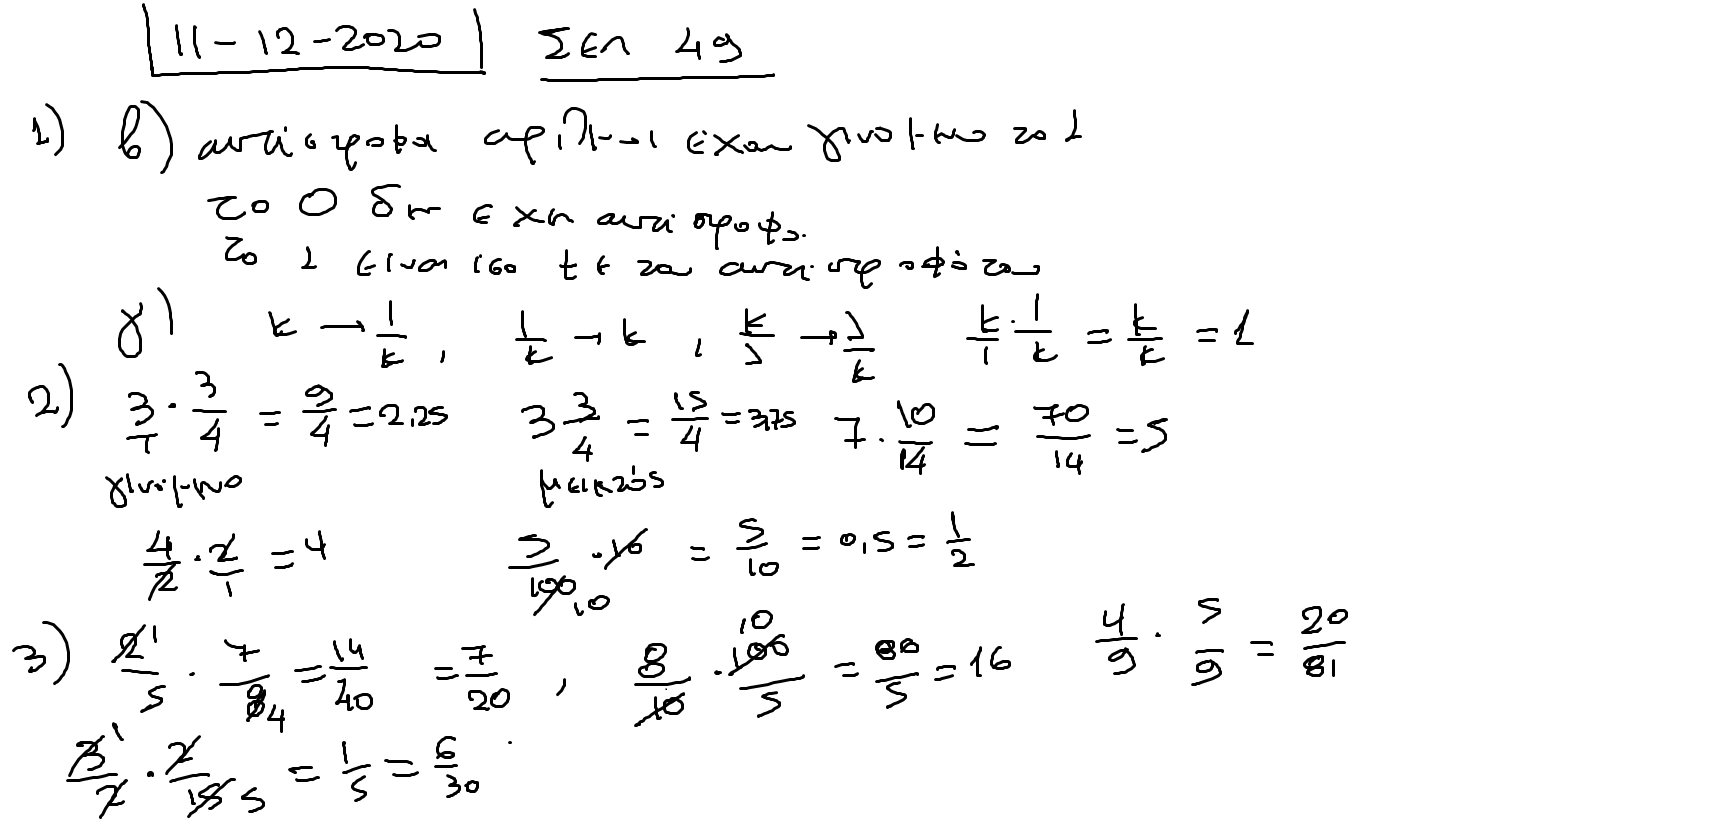 11-12-2020 Σελ 49
1) β) αντίστροφοι αριθμοί έχουν γινόμενο το 1
το 0 δεν έχει αντίστροφο.
το 1 είναι ίσο με τον αντίστροφό του
γ) κ → 1/κ, 1/κ → κ, κ/λ → λ/κ κ/1 · 1/κ = κ/κ = 1
2) 3/1 · 3/4 = 9/4 = 2,25 3 3/4 = 15/4 = 3,75 7 · 10/14 = 70/14 = 5
γινόμενο μεικτός
4/2 · 2/1 = 4 5/100 10 · 10 = 5/10 = 0,5 = 1/2
3) 2 1/5 · 7/8 4 = 14/40 = 7/20 , 8/10 · 100 10/5 = 80/5 = 16 4/9 · 5/9 = 20/81
3 1/2 · 2/15 5 = 1/5 = 6/30